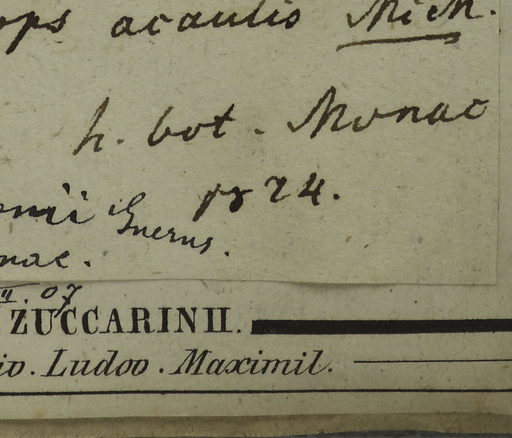 ops acaulis Mich.
h. bot. Monac
1824.
inerus.
nac.
II. 07
ZUCCARINII.
io. Ludov. Maximil.